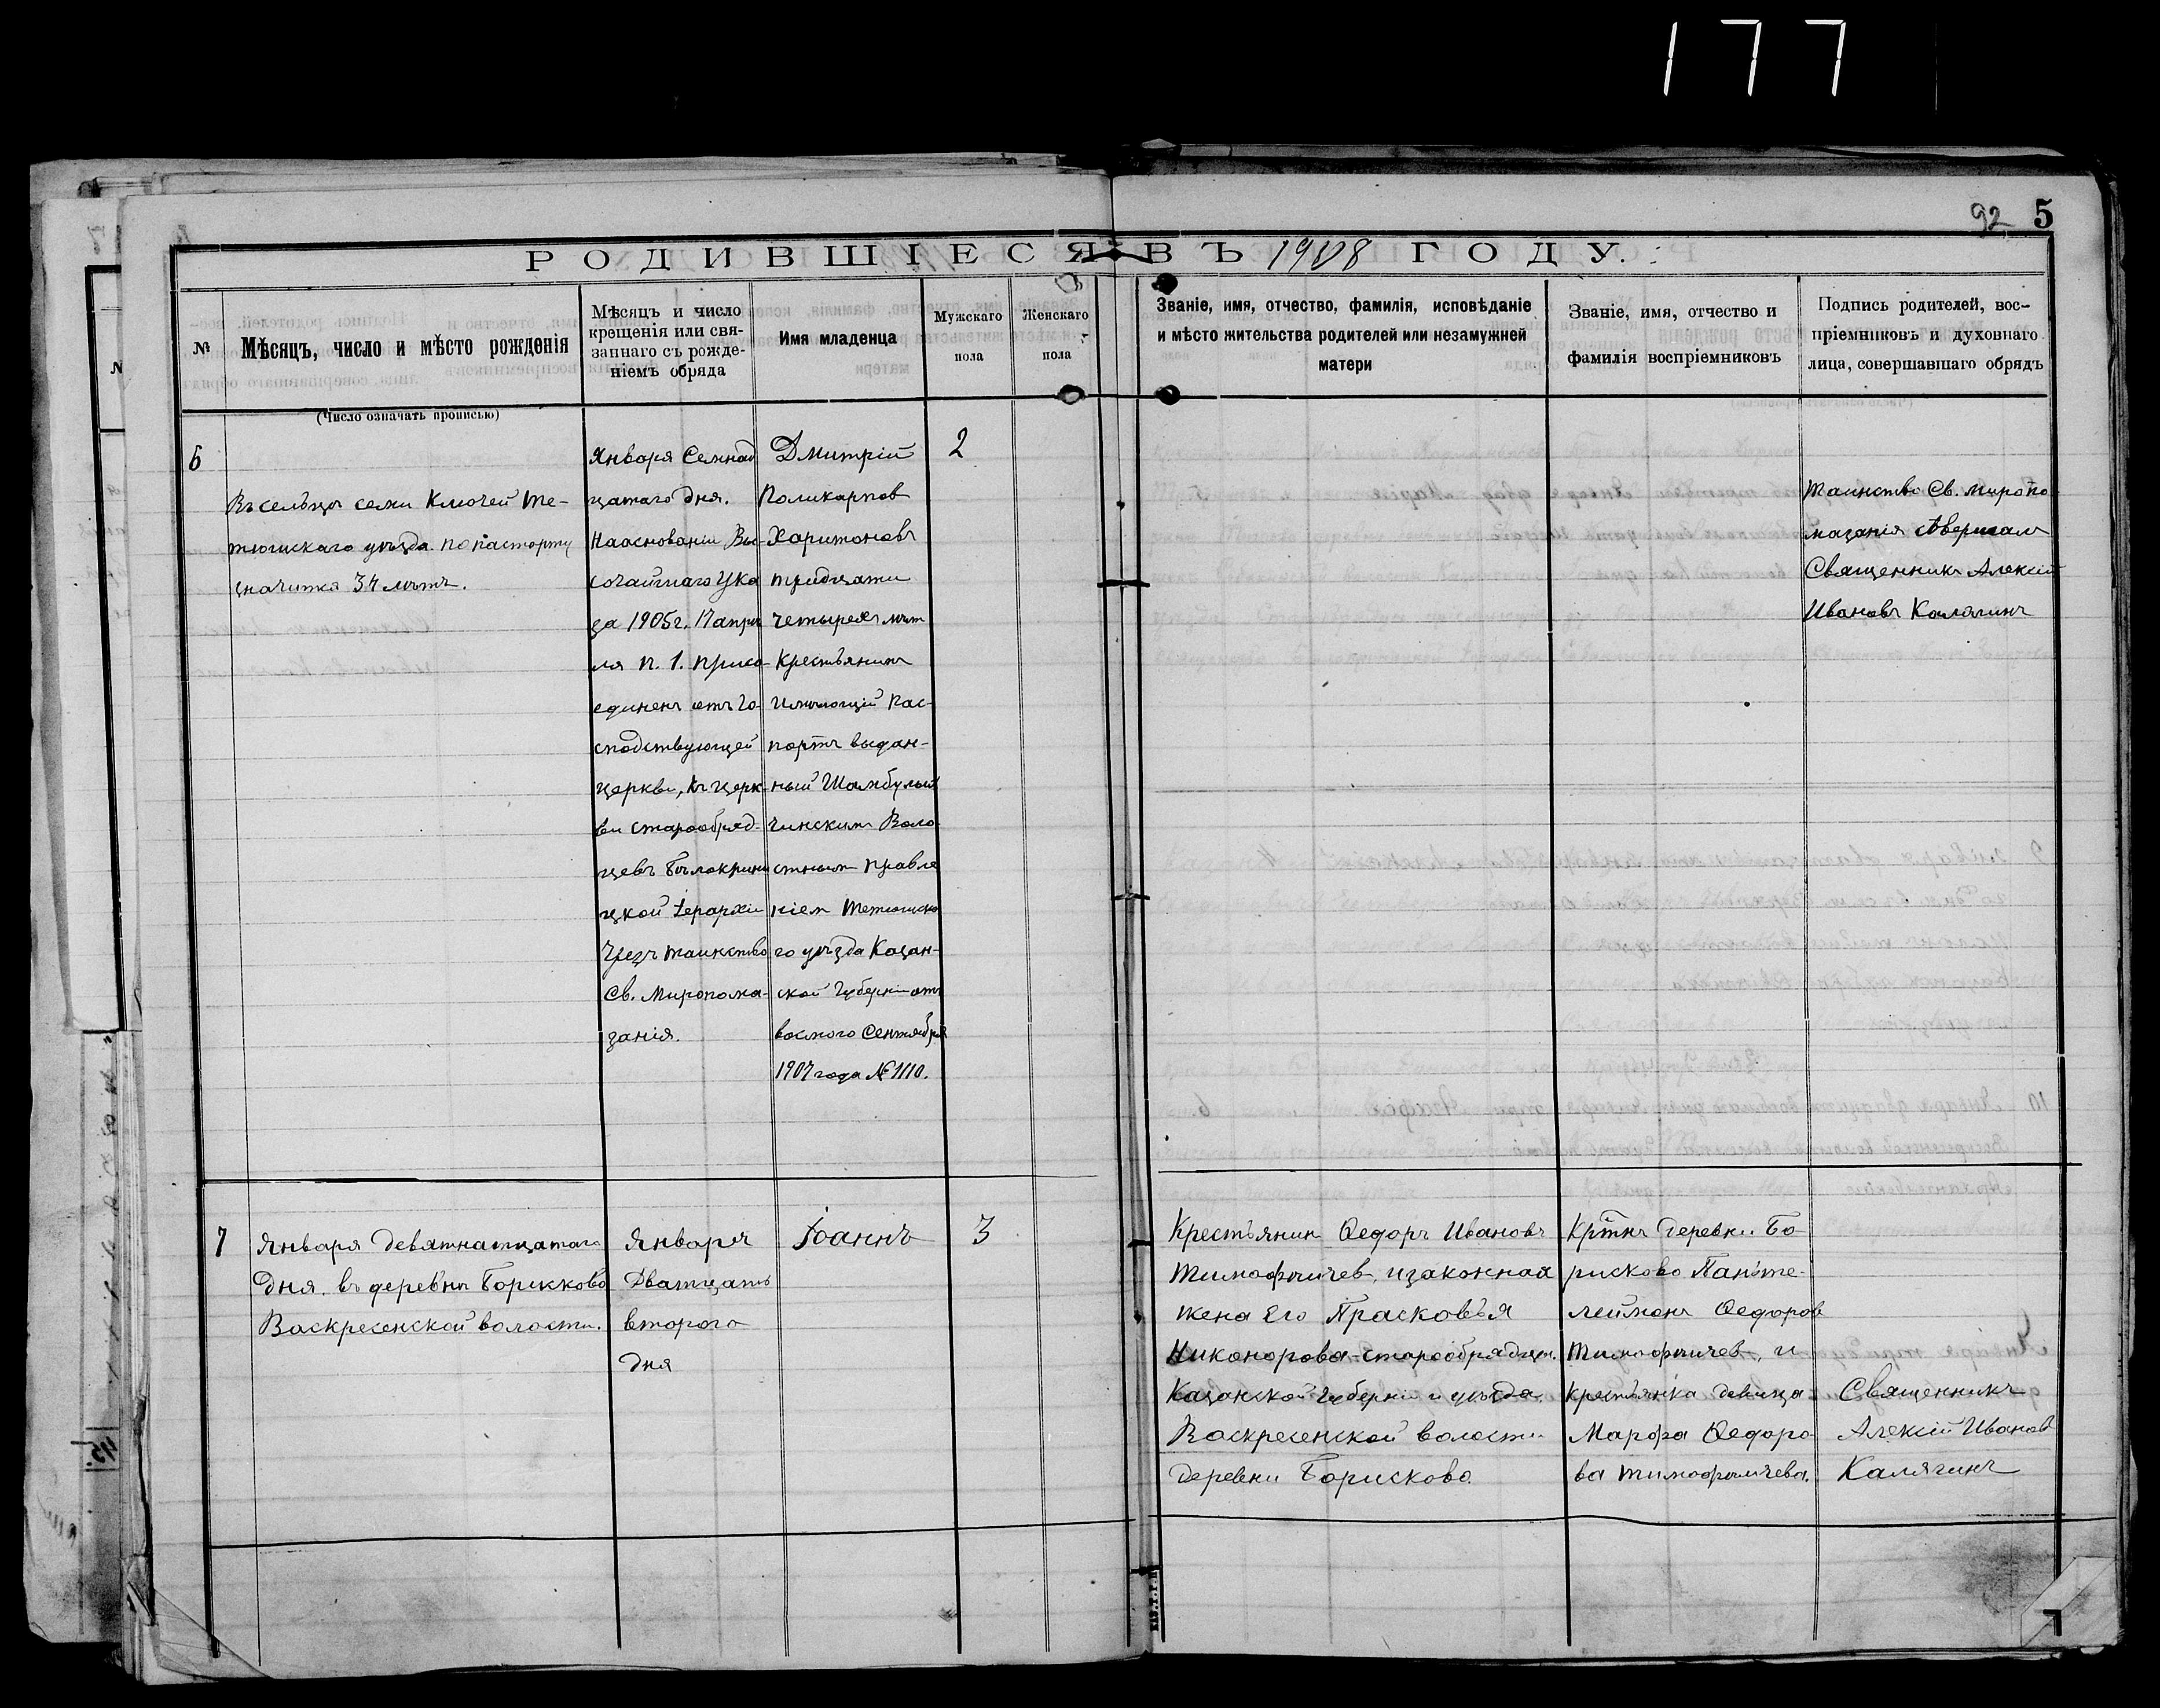 177
92 5
РОДИВШІЕСЯ ВЪ 1908 ГОДУ.
№
Мѣсяцъ, число и мѣсто рожденія
(Число означать прописью)
Мѣсяцъ и число
крещенія или свя-
заннаго съ рожде-
ніемъ обряда
Имя младенца
Мужскаго
пола
Женскаго
пола
Званіе, имя, отчество, фамилія, исповѣданіе
и мѣсто жительства родителей или незамужней
матери
Званіе, имя, отчество и
фамилія воспріемниковъ
Подпись родителей, вос-
пріемниковъ и духовнаго
лица, совершавшаго обрядъ
6
Въ сельцѣ Ключей Те-
тюшскаго уѣзда. по паспорту
значится 34 лѣтъ.
Января Семнад
цатаго дня.
На основаніи Вы-
сочайшаго Ука
за 1905г. 17 апрѣ
ля п. 1. присо-
единенъ отъ Го-
сподствующей
церкви, къ церк-
ви старообряд-
цевъ Бѣлокрини
цкой іерархіи
чрезъ таинство
Св. Миропома-
занія.
Дмитрій
Поликарпов
Харитоновъ
тридцати
четырехъ лѣт
Крестьянинъ
Имѣющій пас-
портъ выдан-
ный Шамбулый
чинскимъ Воло-
стнымъ правле
ніем Тетюшско
го уѣзда Казан-
ской губерніи отъ
восмого Сентября
1907 года № 1110.
2
Таинство Св. миропо
мазанія совершал
Священникъ Алексій
Ивановъ Калягинъ
7
Января девятнатцатаго
дня. въ деревнѣ Борисково
Воскресенской волости.
Января
Дватцать
второго
дня
Іоаннъ
3
Крестьянин Ѳедоръ Ивановъ
Тимофѣичев, и законная
жена Его Прасковья
Никонорова-старообрядцы.
Казанской губерніи и уѣзда.
Воскресенской волости
деревни Борисково.
Кртнъ деревни Бо-
рисково Панте-
леймонъ Ѳедоров
Тимофѣичев, и
крестьянка девица
Марѳа Ѳедоро
ва Тимофѣичева.
Священникъ
Алексій Иванов
Калягинъ